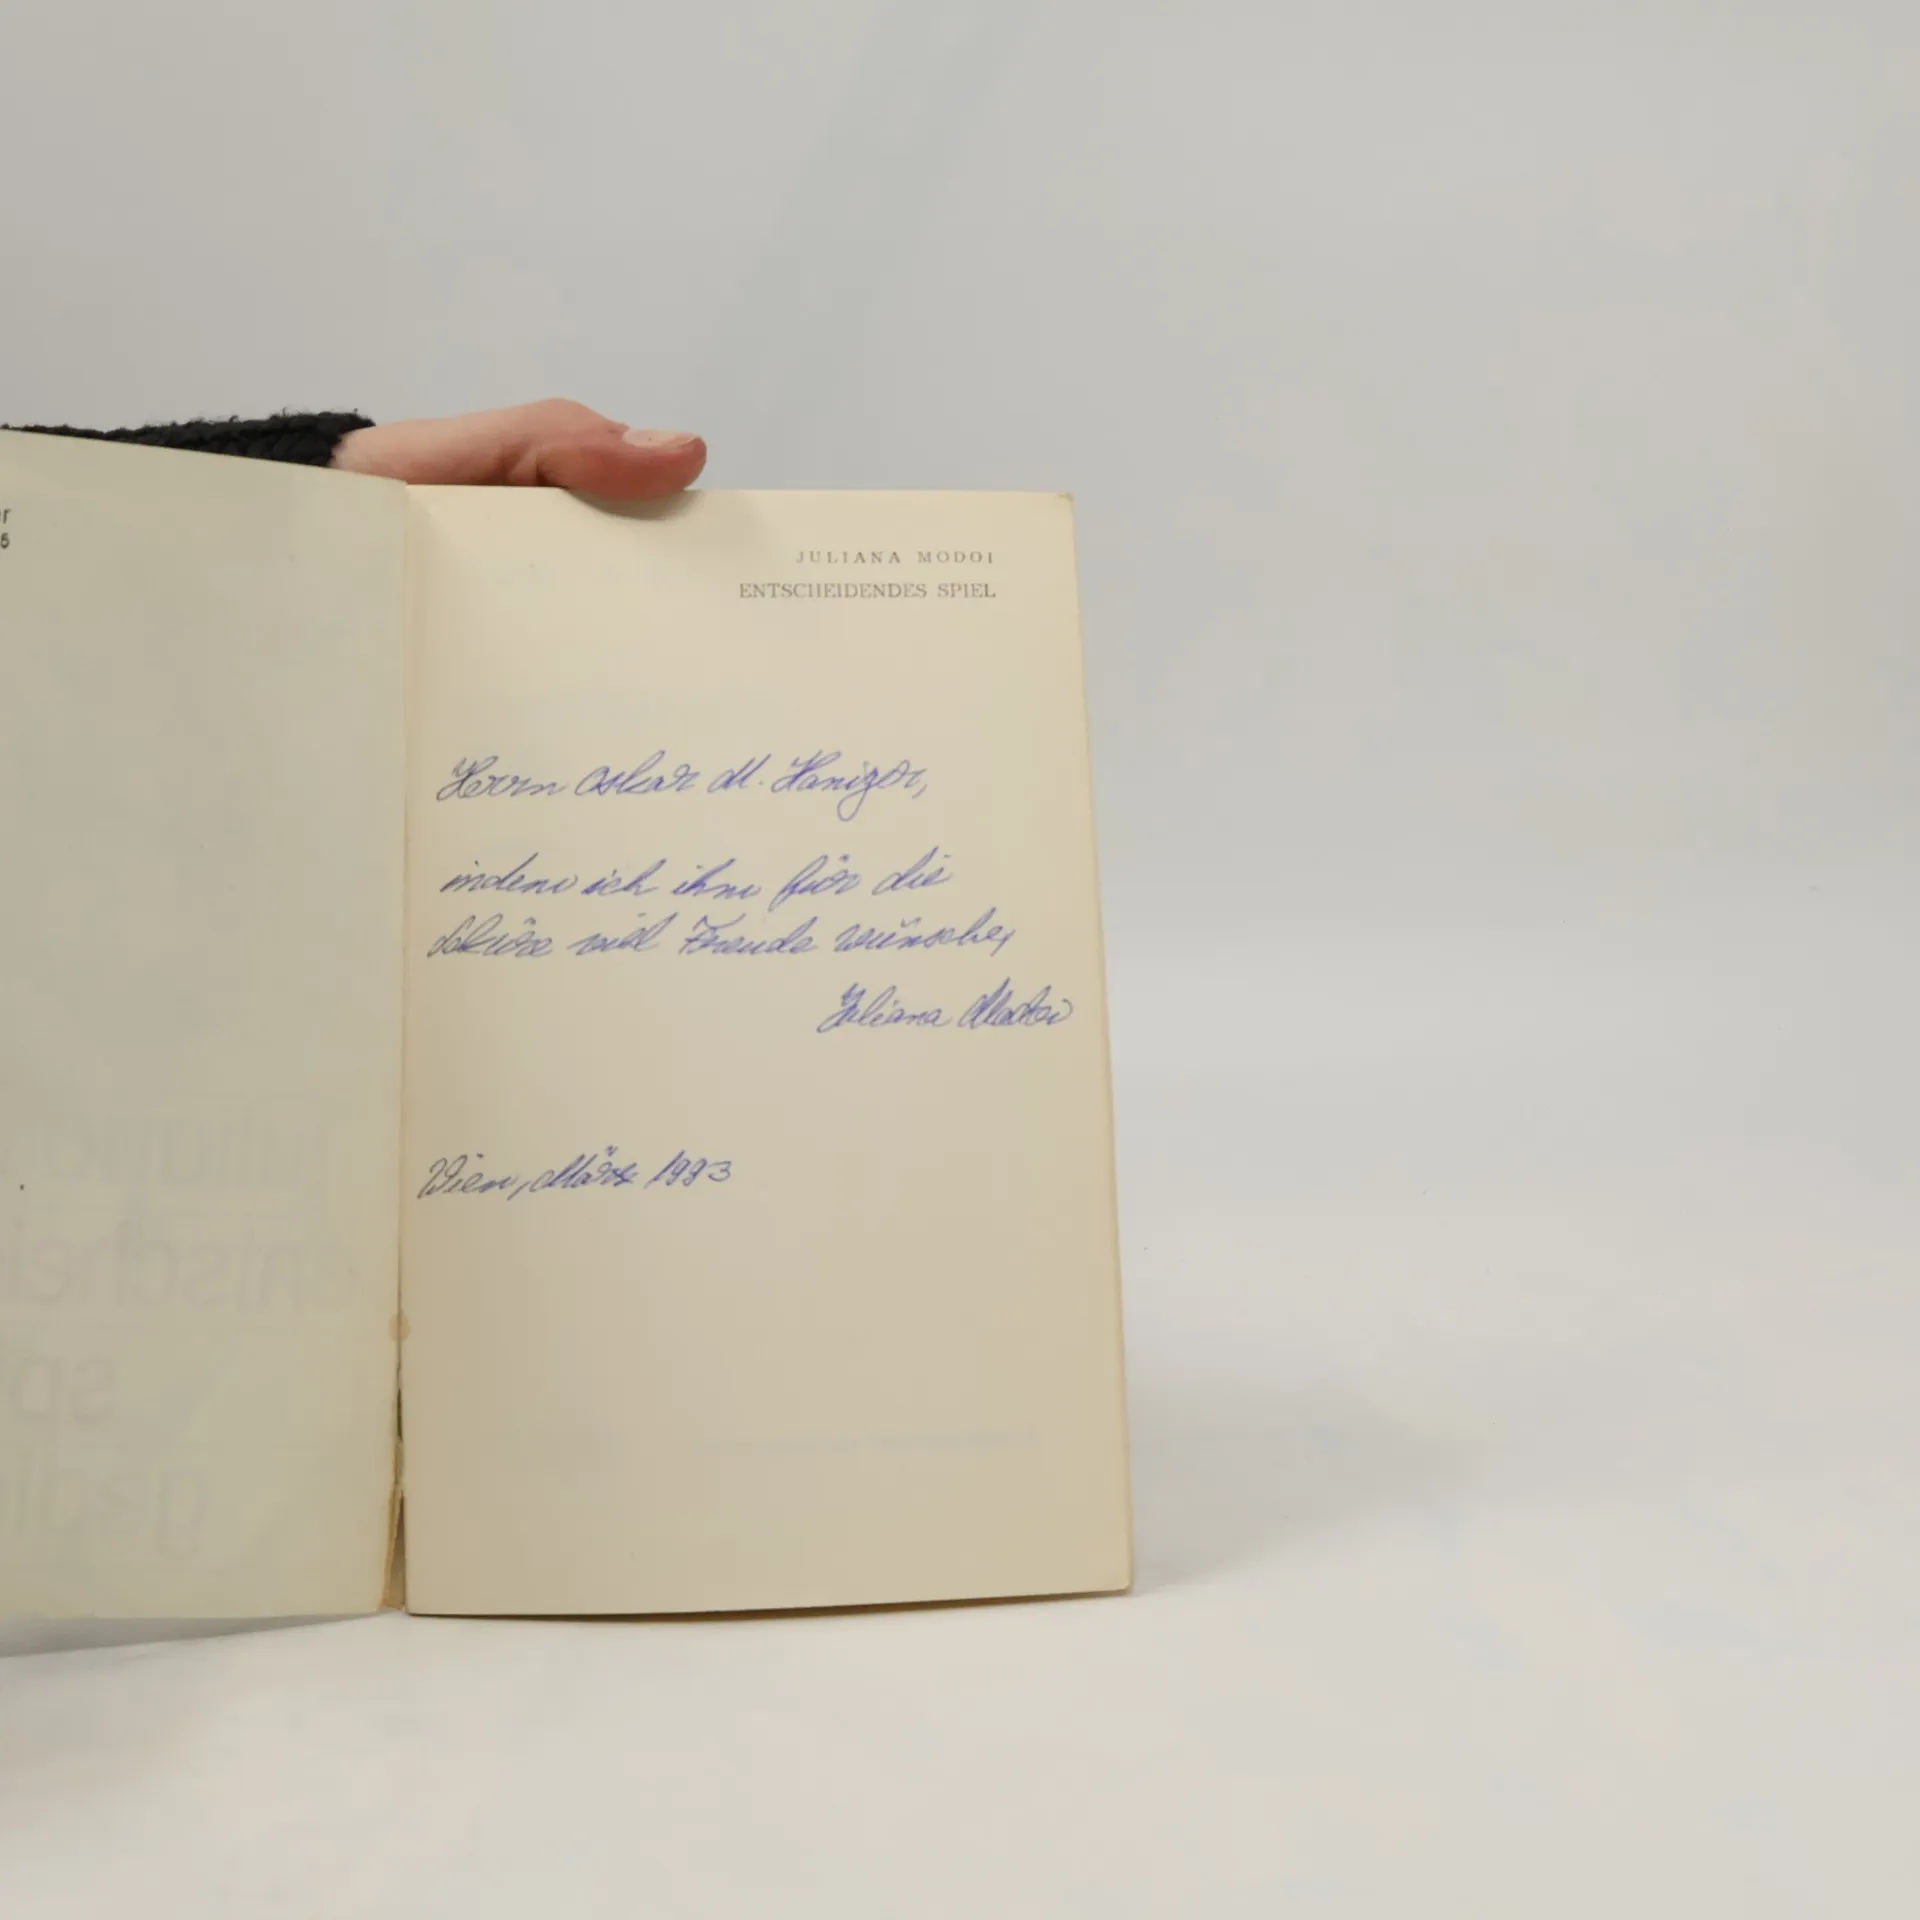 r
6
JULIANA MODOI
ENTSCHEIDENDES SPIEL
Herrn Oskar M. Hanizer,
indem ich ihm für die
Lektüre viel Freude wünsche,
Juliana Modoi
Wien, März 1993